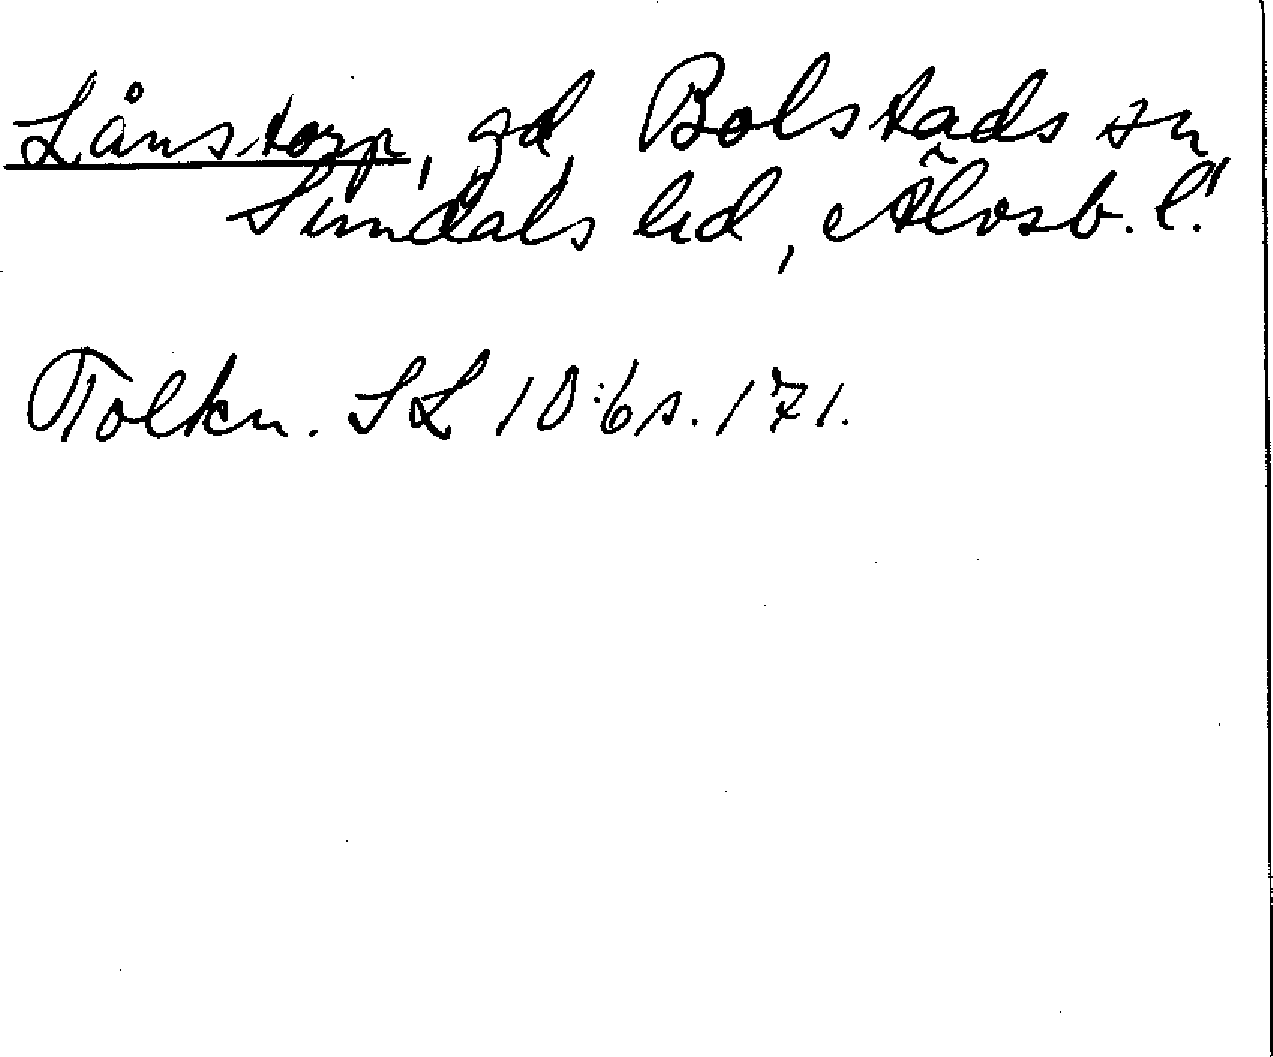 Lånstorp, gd, Bolstads sn,
Sundals hd, Älvsb. l.
Tolkn. SL 10:6 s. 171.